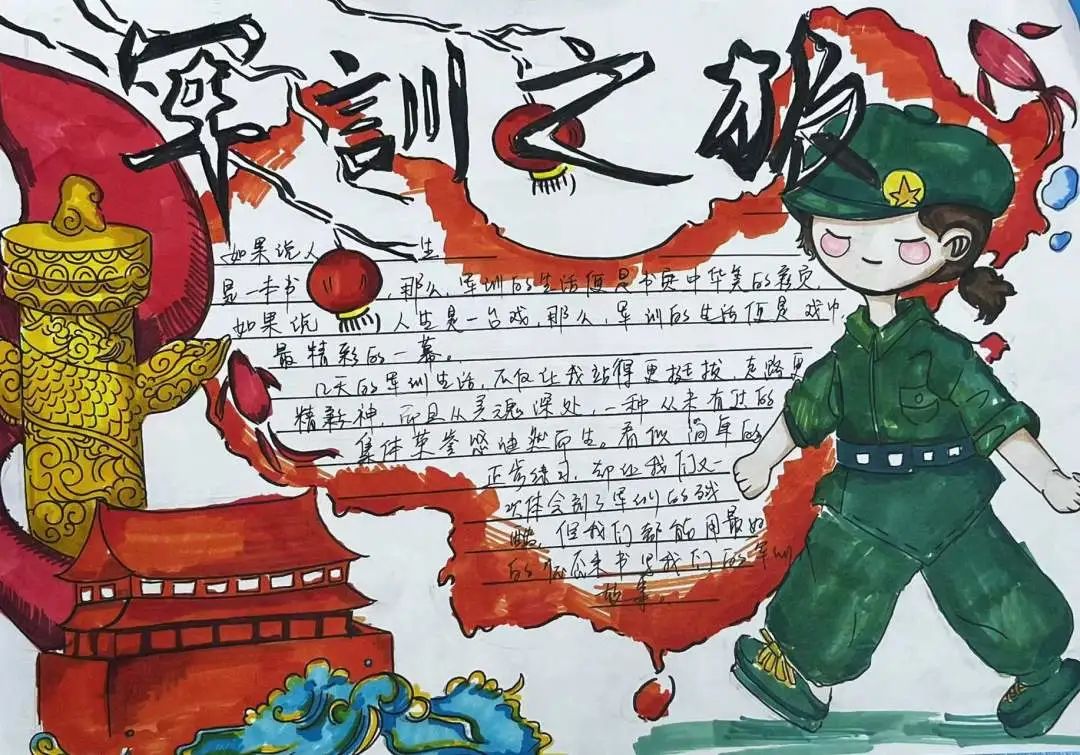 军训之旅
如果说人生
是一本书,那么,军训的生活便是书中华美的
如果说人生是一台戏,那么,军训的生活便是戏中
最精彩的一幕。
几天的军训生活,不仅让我站得更挺拔走路更
精彩神,而且从灵魂深处,一种从未有过的
集体荣誉感油然而生。看似简单的
正常练习,却让我们又
次体会到了军训的
但我们都能用最好
的 来书写我们的军训